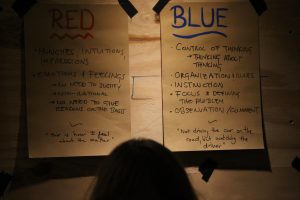 RED
• HUNCHES, INTUITION,
• EMOTIONS & FEELINGS
- NO NEED TO JUSTIFY
- NON-RATIONAL
- NO NEED TO GIVE
REASONS OR THE
"This is how I feel
about the matter"
BLUE
• CONTROL OF THINKING
→ THINKING ABOUT
THINKING
• ORGANIZATION
• INSTRUCTION
• FOCUS & DEFINING
THE PROBLEM
• OBSERVATION / COMMENT
"Not driving the car on the
road, but watching the
driver"